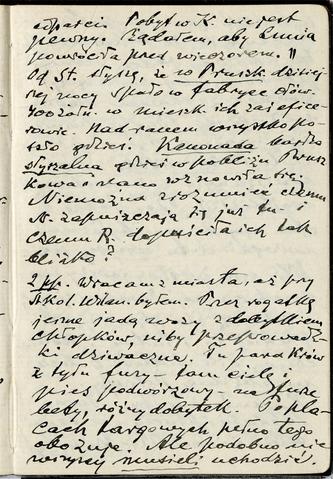 odparci. Pobyt w K. nie jest
pewny. Żądałem, aby Lunia
powróciła przed wieczorem.
Od St. słyszę, że w Pruszk. dzisiej
szej nocy spało w fabryce ołów.
400 żołn. w mieszk. ich zaś ofice-
rowie. Nad ranem wszystko po-
szło gdzieś. Kanonada bardzo
słyszalna gdzieś w pobliżu Prusz
kowa rano wznowiła się.
Niemożna zrozumieć czemu
N. zapuszczają się już tu i
czemu R. dopuściła ich tak
blizko?
2 pp. Wracam z miasta, aż przy
Szkol. byłem. Przez rogatkę
jedne jadą wozy z dobytkiem
chłopków, niby przeprowadz-
ki dziwaczne. Tu para krów
z tyłu fury - tam cielę i
pies podwórzowy - na furze
bety, różny dobytek. Po pla-
cach targowych pełno tego
obozuje. Ale podobno nie
wszyscy musieli uchodzić.